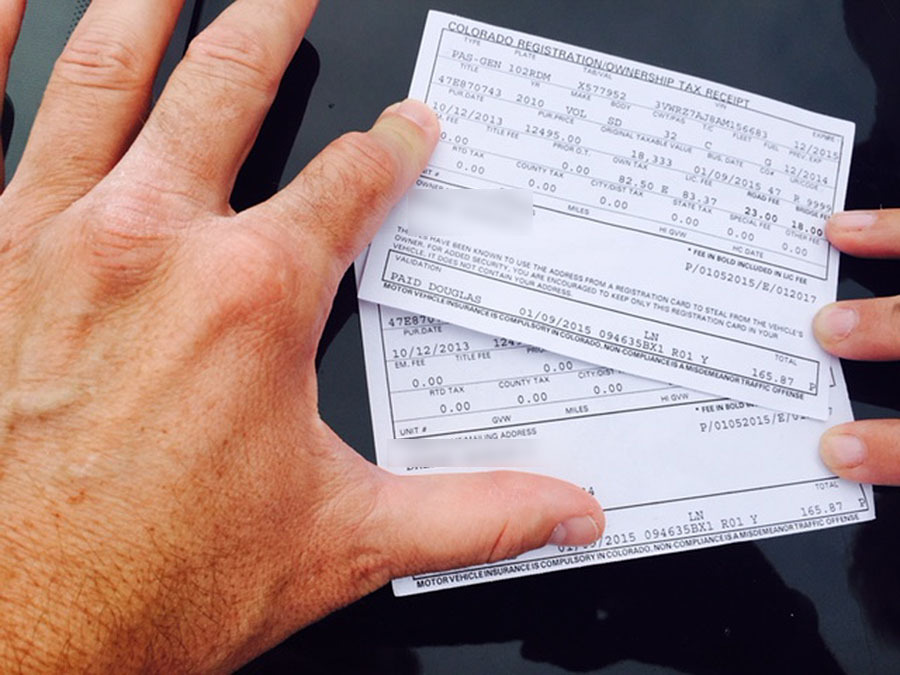 COLORADO REGISTRATION/OWNERSHIP TAX RECEIPT
TYPE PLATE TAB/VAL VIN EXPIRE
PAS-GEN 102RDM X577952 3VWRZ7AJ8AM156683 12/2015
TITLE YR MAKE BODY CWT/PAS T/C FLEET FUEL PREV. EXP
47E870743 2010 VOL SD 32 C G 12/2014
PUR.DATE PUR.PRICE ORIGINAL TAXABLE VALUE BUS. DATE CO# UNICODE
10/12/2013 12495.00 18,333 01/09/2015 47 R 9999
FEE TITLE FEE PRIOR O.T. OWN TAX LIC FEE ROAD FEE BRIDGE FEE
0.00 0.00 82.50 E 83.37 23.00 18.00
RTD TAX COUNTY TAX CITY/DIST TAX STATE TAX SPECIAL FEE OTHER FEE
0.00 0.00 0.00 0.00 0.00 0.00
# MILES HI GVW HC DATE
OWNER
* FEE IN BOLD INCLUDED IN LIC FEE
P/01052015/E/012017
HAVE BEEN KNOWN TO USE THE ADDRESS FROM A REGISTRATION CARD TO STEAL FROM THE VEHICLE'S
OWNER. FOR ADDED SECURITY, YOU ARE ENCOURAGED TO KEEP ONLY THIS REGISTRATION CARD IN YOUR
VEHICLE. IT DOES NOT CONTAIN YOUR ADDRESS.
VALIDATION LN TOTAL
PAID DOUGLAS 01/09/2015 094635BX1 R01 Y 165.87 P
MOTOR VEHICLE INSURANCE IS COMPULSORY IN COLORADO. NON COMPLIANCE IS A MISDEMEANOR TRAFFIC OFFENSE
47E870
PUR.DATE
10/12/2013
EM. FEE TITLE FEE
0.00 0.00
RTD TAX COUNTY TAX
0.00 0.00 0.00
UNIT # GVW MILES HI GVW
* FEE IN BOLD
P/01052015/E/
MAILING ADDRESS
LN TOTAL
2015 094635BX1 R01 Y 165.87 P
MOTOR VEHICLE INSURANCE IS COMPULSORY IN COLORADO. NON COMPLIANCE IS A MISDEMEANOR TRAFFIC OFFENSE